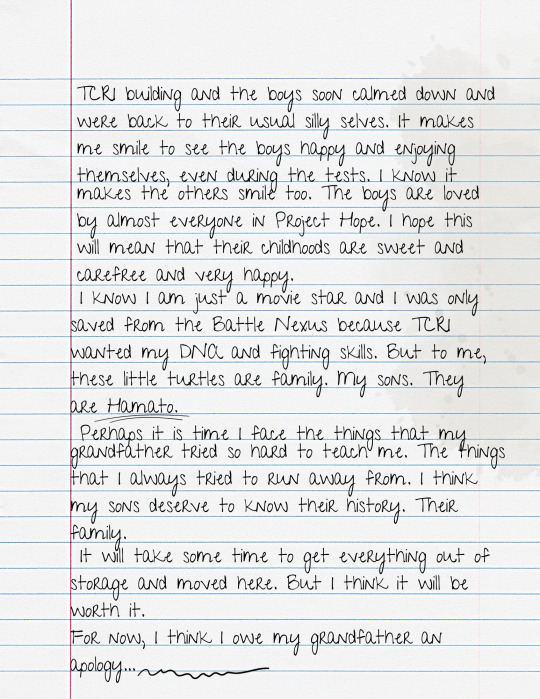 TCRI building and the boys soon calmed down and
were back to their usual silly selves. It makes
me smile to see the boys happy and enjoying
themselves, even during the tests. I know it
makes the others smile too. The boys are loved
by almost everyone in Project Hope. I hope this
will mean that their childhoods are sweet and
carefree and very happy.
I know I am just a movie star and I was only
saved from the Battle Nexus because TCRI
wanted my DNA and fighting skills. But to me,
these little turtles are family. My sons. They
are Hamato.
Perhaps it is time I face the things that my
grandfather tried so hard to teach me. The things
that I always tried to run away from. I think
my sons deserve to know their history. Their
family.
It will take some time to get everything out of
storage and moved here. But I think it will be
worth it.
For now, I think I owe my grandfather an
apology...